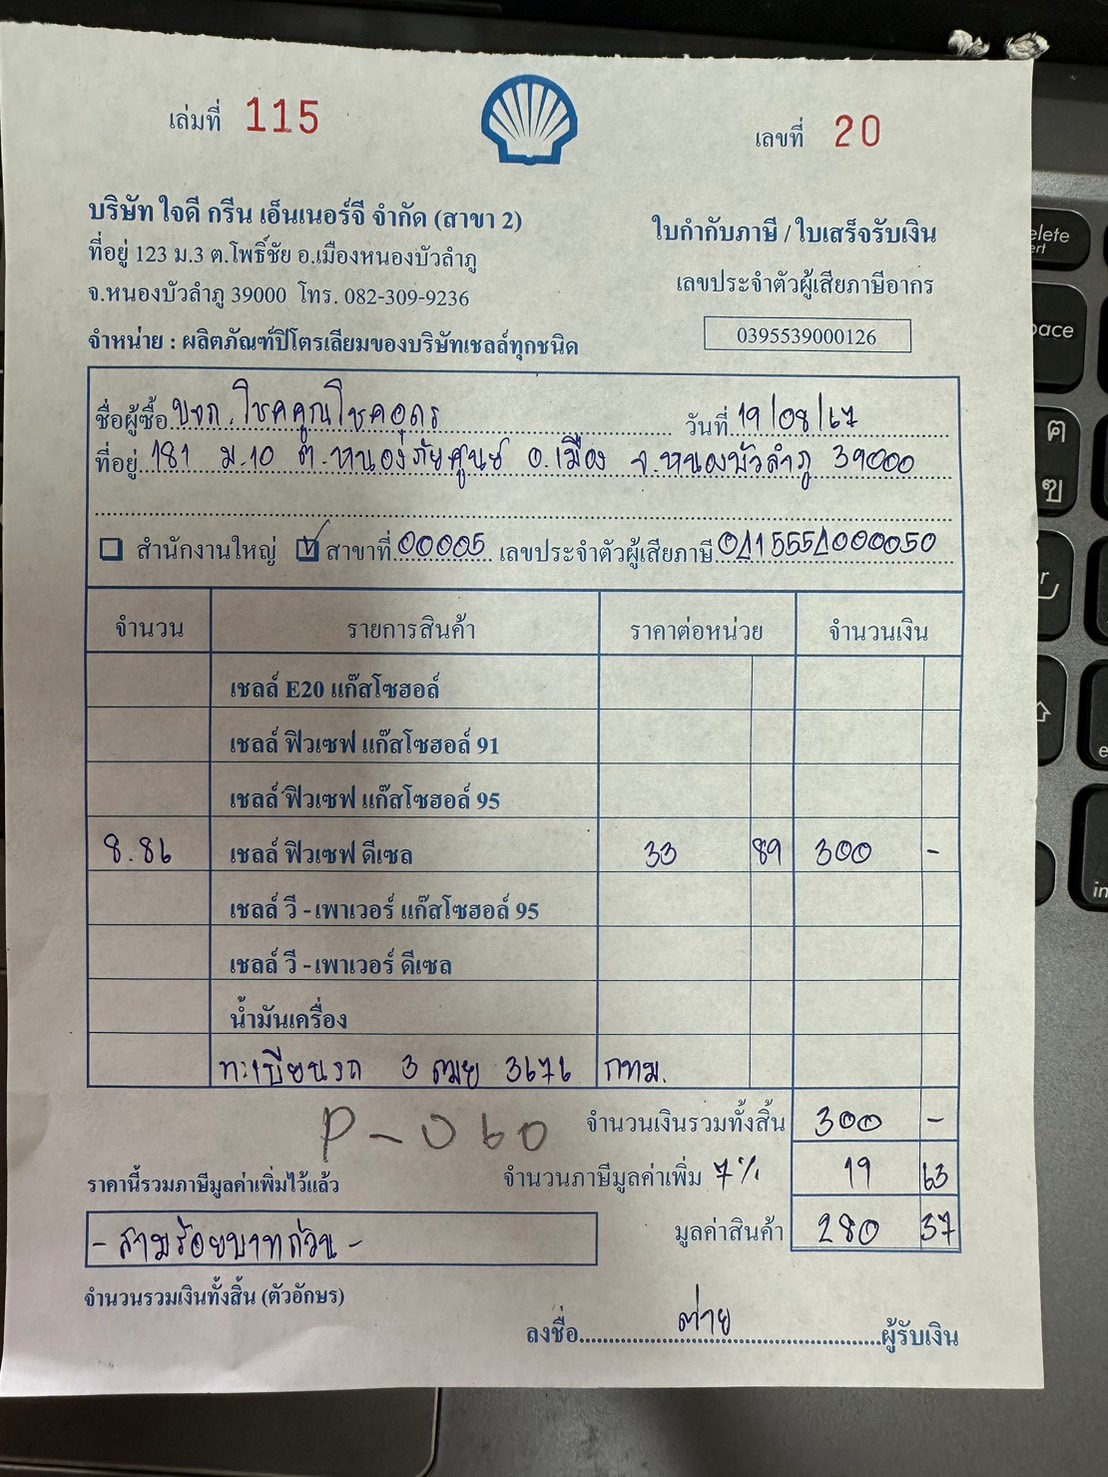 เล่มที่ 115
เลขที่ 20
บริษัท ใจดี กรีน เอ็นเนอร์จี จำกัด (สาขา 2)
ที่อยู่ 123 ม.3 ต.โพธิ์ชัย อ.เมืองหนองบัวลำภู
จ.หนองบัวลำภู 39000 โทร. 082-309-9236
จำหน่าย : ผลิตภัณฑ์ปิโตรเลียมของบริษัทเชลล์ทุกชนิด
ใบกำกับภาษี / ใบเสร็จรับเงิน
เลขประจำตัวผู้เสียภาษีอากร
0395539000126
ชื่อผู้ซื้อ บจก. โชคคูณโชคอุดร วันที่ 19/08/67
ที่อยู่ 181 ม.10 ต.หนองภัยศูนย์ อ.เมือง จ.หนองบัวลำภู 39000
สำนักงานใหญ่ สาขาที่ 00005 เลขประจำตัวผู้เสียภาษี 0415551000050
จำนวน รายการสินค้า ราคาต่อหน่วย จำนวนเงิน
เชลล์ E20 แก๊สโซฮอล์
เชลล์ ฟิวเซฟ แก๊สโซฮอล์ 91
เชลล์ ฟิวเซฟ แก๊สโซฮอล์ 95
8.86 เชลล์ ฟิวเซฟ ดีเซล 33 89 300 -
เชลล์ วี - เพาเวอร์ แก๊สโซฮอล์ 95
เชลล์ วี - เพาเวอร์ ดีเซล
น้ำมันเครื่อง
ทะเบียนรถ 3 ฒย 3676 กทม.
จำนวนเงินรวมทั้งสิ้น 300 -
P-060
จำนวนภาษีมูลค่าเพิ่ม 7% 19 63
ราคานี้รวมภาษีมูลค่าเพิ่มไว้แล้ว
มูลค่าสินค้า 280 37
- สามร้อยบาทถ้วน -
จำนวนรวมเงินทั้งสิ้น (ตัวอักษร)
ลงชื่อ ต่าย ผู้รับเงิน